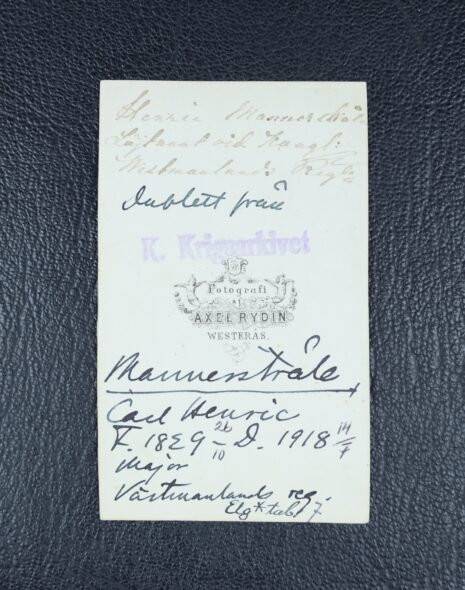 Henric Mannerstråle
Löjtnant vid Kongl:
Westmanlands Regte
Dublett från
K. Krigsarkivet
Fotografi
af
AXEL RYDIN
WESTERÅS.
Mannerstråle
Carl Henric
F. 1829 26/10 – D. 1918 14/7
Major
Västmanlands reg.
Elg* tab. 7